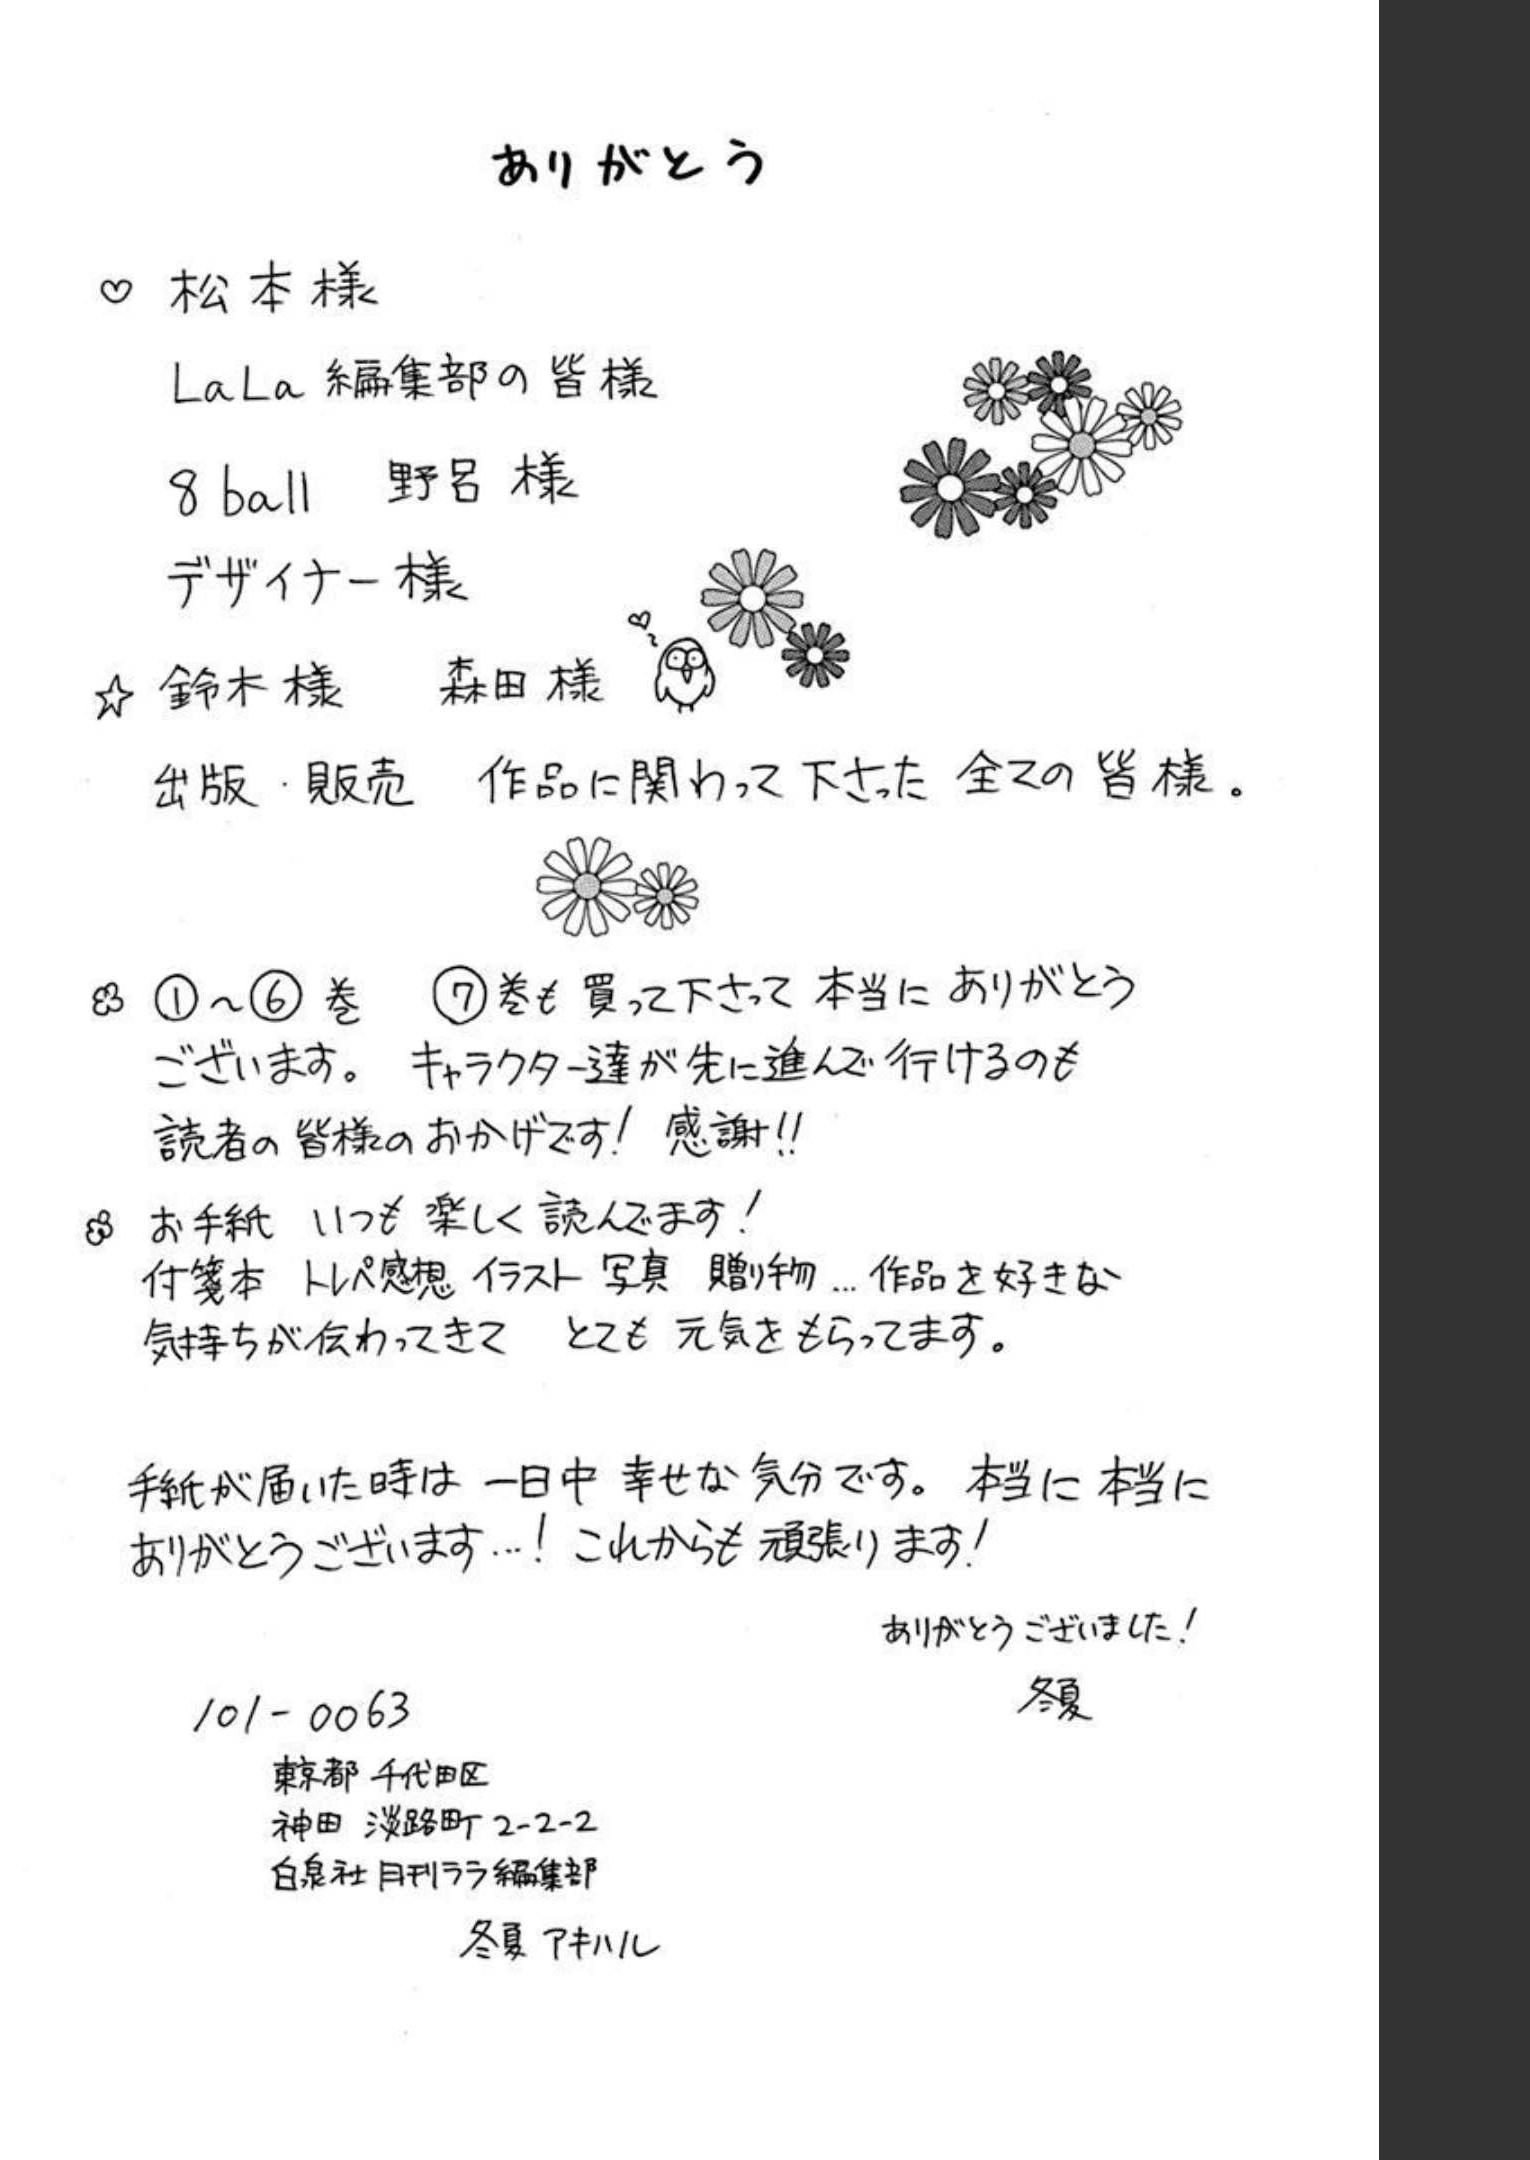 ありがとう
♡ 松本様
LaLa 編集部の皆様
8 ball 野呂様
デザイナー様
☆ 鈴木様 森田様
出版・販売 作品に関わって下さった 全ての皆様。
①～⑥巻 ⑦巻も買って下さって 本当に ありがとう
ございます。 キャラクター達が先に進んで行けるのも
読者の皆様のおかげです! 感謝!!
お手紙 いつも楽しく読んでます!
付箋本 トレペ感想 イラスト 写真 贈り物… 作品を好きな
気持ちが伝わってきて とても 元気をもらってます。
手紙が届いた時は 一日中 幸せな気分です。 本当に 本当に
ありがとうございます…! これからも頑張ります!
ありがとうございました!
冬夏
101-0063
東京都 千代田区
神田 淡路町 2-2-2
白泉社 月刊ララ編集部
冬夏 アキハル